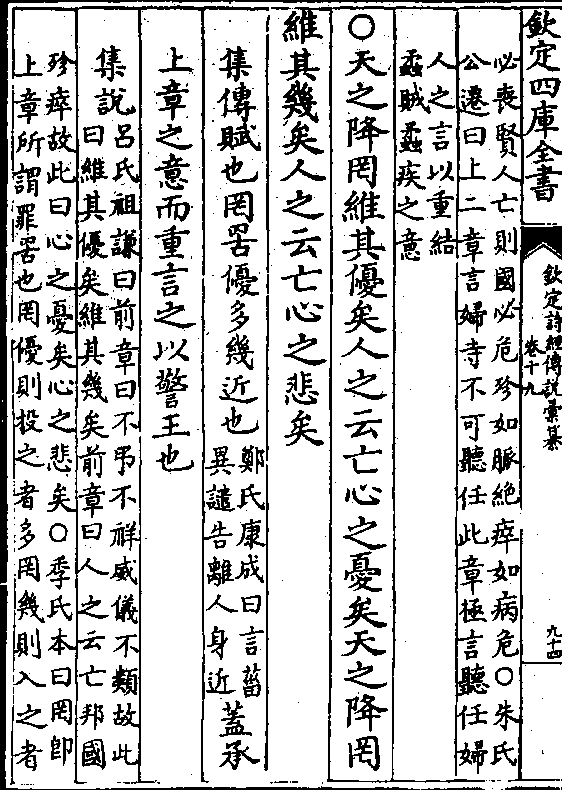 欽定四庫全書
欽定詩經傳說彙纂
卷十九
九十四
必喪賢人亡則國必危殄如脈絕瘁如病危○朱氏
公遷曰上二章言婦寺不可聽任此章極言聽任婦
人之言以重結
蟊賊蟊疾之意
○天之降罔維其優矣人之云亡心之憂矣天之降罔
維其幾矣人之云亡心之悲矣
集傳賦也罔罟優多幾近也鄭氏康成曰言菑
異譴告離人身近蓋承
上章之意而重言之以警王也
集說呂氏祖謙曰前章曰不弔不祥威儀不類故此
曰維其優矣維其幾矣前章曰人之云亡邦國
殄瘁故此曰心之憂矣心之悲矣○季氏本曰罔卽
上章所謂罪罟也罔優則投之者多罔幾則入之者